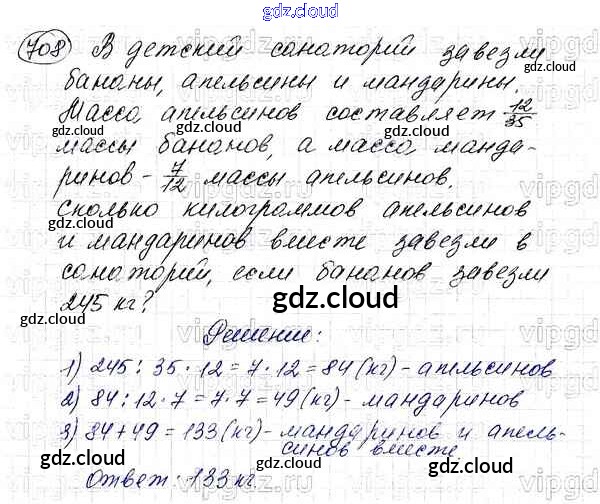 gdz.cloud
708 В детский санаторий завезли
gdz.cloud gdz.cloud
бананы, апельсины и мандарины.
Масса апельсинов составляет 12/35
gdz.cloud gdz.cloud
массы бананов, а масса манда-
ринов - 7/12 массы апельсинов.
Сколько килограммов апельсинов
gdz.cloud gdz.cloud
и мандаринов вместе завезли в
санаторий, если бананов завезли
245 кг?
gdz.cloud
Решение:
1) 245 : 35 · 12 = 7 · 12 = 84 (кг) - апельсинов
gdz.cloud gdz.cloud
2) 84 : 12 · 7 = 7 · 7 = 49 (кг) - мандаринов
3) 84 + 49 = 133 (кг) - мандаринов и апель-
синов вместе
gdz.cloud gdz.cloud
Ответ: 133 кг.
gdz.cloud